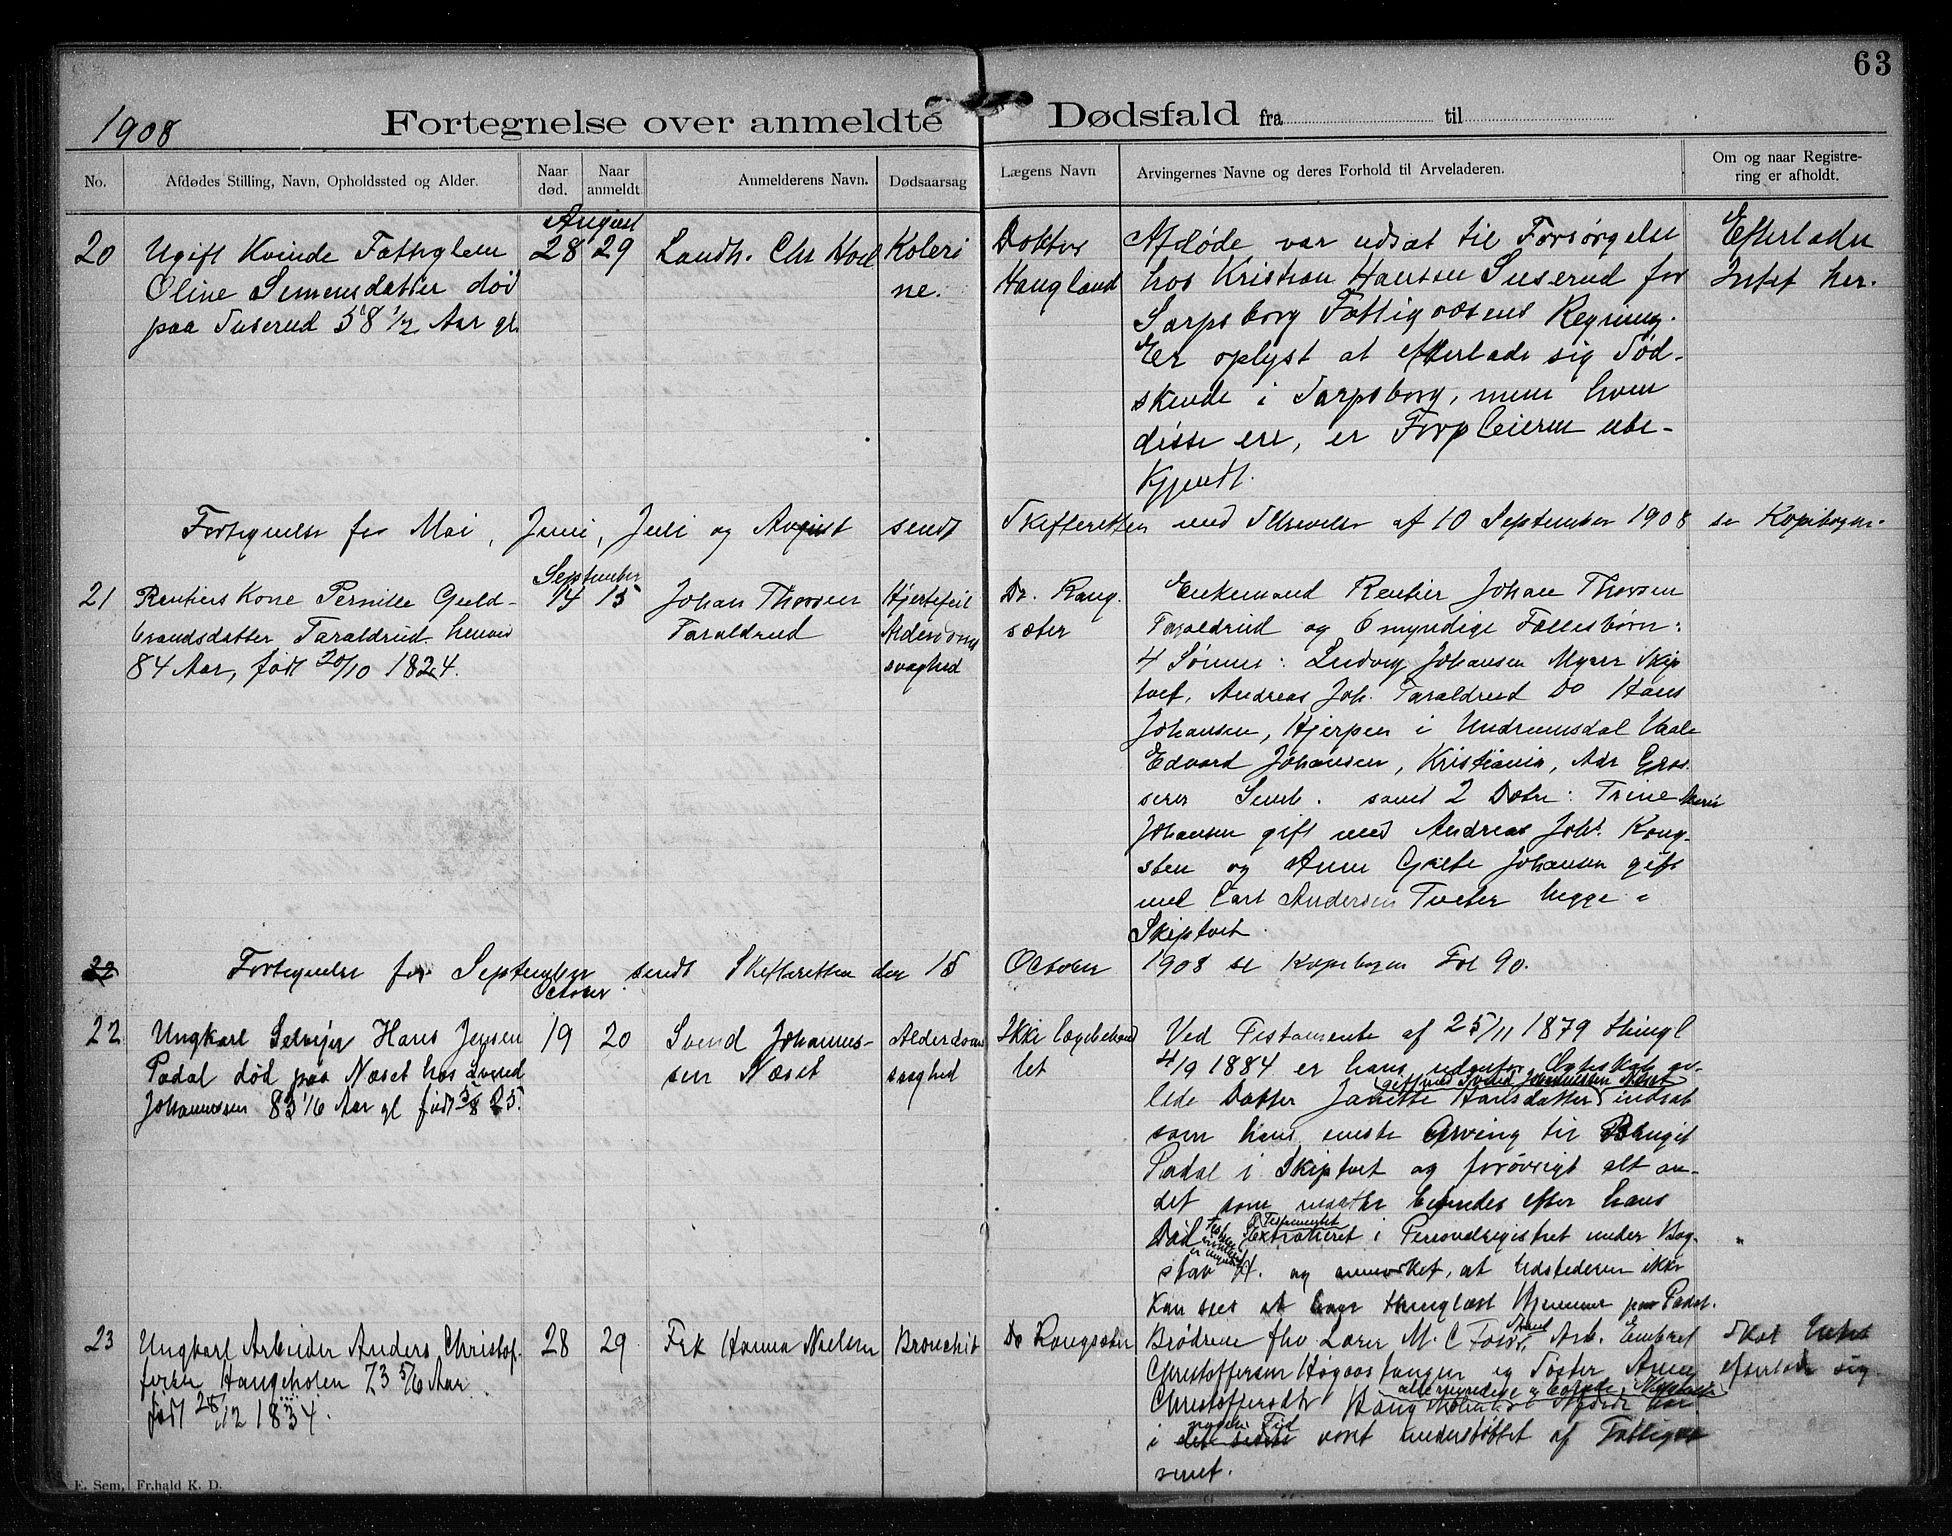 63
1908
Fortegnelse over anmeldte Dødsfald fra til
No.
Afdødes Stilling, Navn, Opholdssted og Alder.
Naar død.
Naar anmeldt.
Anmelderens Navn.
Dødsaarsag
Lægens Navn
Arvingernes Navne og deres Forhold til Arveladeren.
Om og naar Registre-
ring er afholdt.
August
20
Ugift Kvinde Fattiglem
Oline Simensdatter død
paa Suserud 58 1/2 Aar gl
28 29
Landh. Chr
Koleri
ne.
Doktor
Haugland
Afdøde var udsat til Forsørgelse
hos Kristian Hansen Suserud for
Sarpsborg Fattigvæsens Regning.
Er oplyst at efterlade sig Sød-
skende i Sarpsborg, men hvem
disse ere, er Forpleieren ube-
kjendt.
Efterlader
Intet her.
Fortegnelse for Mai, Juni, Juli og August sendt Skifteretten med Skrivelse af 10 September 1908 se Kopibogen.
September
21
Rentiers Kone Pernille Guld-
brandsdatter Taraldrud henved
84 Aar, født 20/10 1824.
14 15
Johan Thorsen
Taraldrud
Hjertefeil
Alderdoms
svaghed
Dr. Rang.
sæter
Enkemand Rentier Johan Thorsen
Taraldrud og 6 myndige Fællesbørn:
4 Sønner: Ludvig Johansen Myrer Skip
tvet, Andreas Joh. Taraldrud Do Hans
Johansen, Hjerpen i Undrumsdal Vaale
Edvard Johansen, Kristiania, Adr Gros.
serer samt 2 Døtre: Trine Marie
Johansen gift med Andreas Joh. Kong-
sten og Anne Grete Johansen gift
med Carl Andersen Tveter begge i
Skiptvet.
22
Fortegnelse for September sendt Skifteretten den 15 October 1908 se Kopibogen Fol 90.
October
22
Ungkarl Selveier Hans Jensen
Padal død paa Næset hos Svend
Johannessen 83 1/6 Aar gl født 5/8 25.
19 20
Svend Johannes-
sen Næset
Alderdoms
svaghed
Ikke lægebehand
let
Ved Testamente af 25/11 1879 thingl
4/9 1884 er hans udenfor Ægteskab av-
gift med Svend Johannessen Næset
lede Datter Janette Hansdatter indsat
som hans eneste Arving til Bruget
Padal i Skiptvet og forøvrigt alt an-
det som maatte befindes efter hans
Testamentet
Død Extraheret i Personalregistret under Bog-
stav H. og anmerket, at Udstederen ikke
kan sees at have thinglæst Hjemmel paa Padal.
"
23
Ungkarl Arbeider Anders Christof-
fersen Haugeholen 73 5/6 Aar
født 28/12 1834.
28 29
Frk Hanna Nielsen
Bronchit
Dr Rangsæter
Brødrene fhv Lærer M. C Arb. Embret
Christoffersen Høgaastangen og Søster Anne
alle myndige
Christoffersdtr
nyere Tid
i det sidste været understøttet af Fattigvæ
senet.
Skal Intet
efterlade sig
E. Sem, Fr.hald K. D.